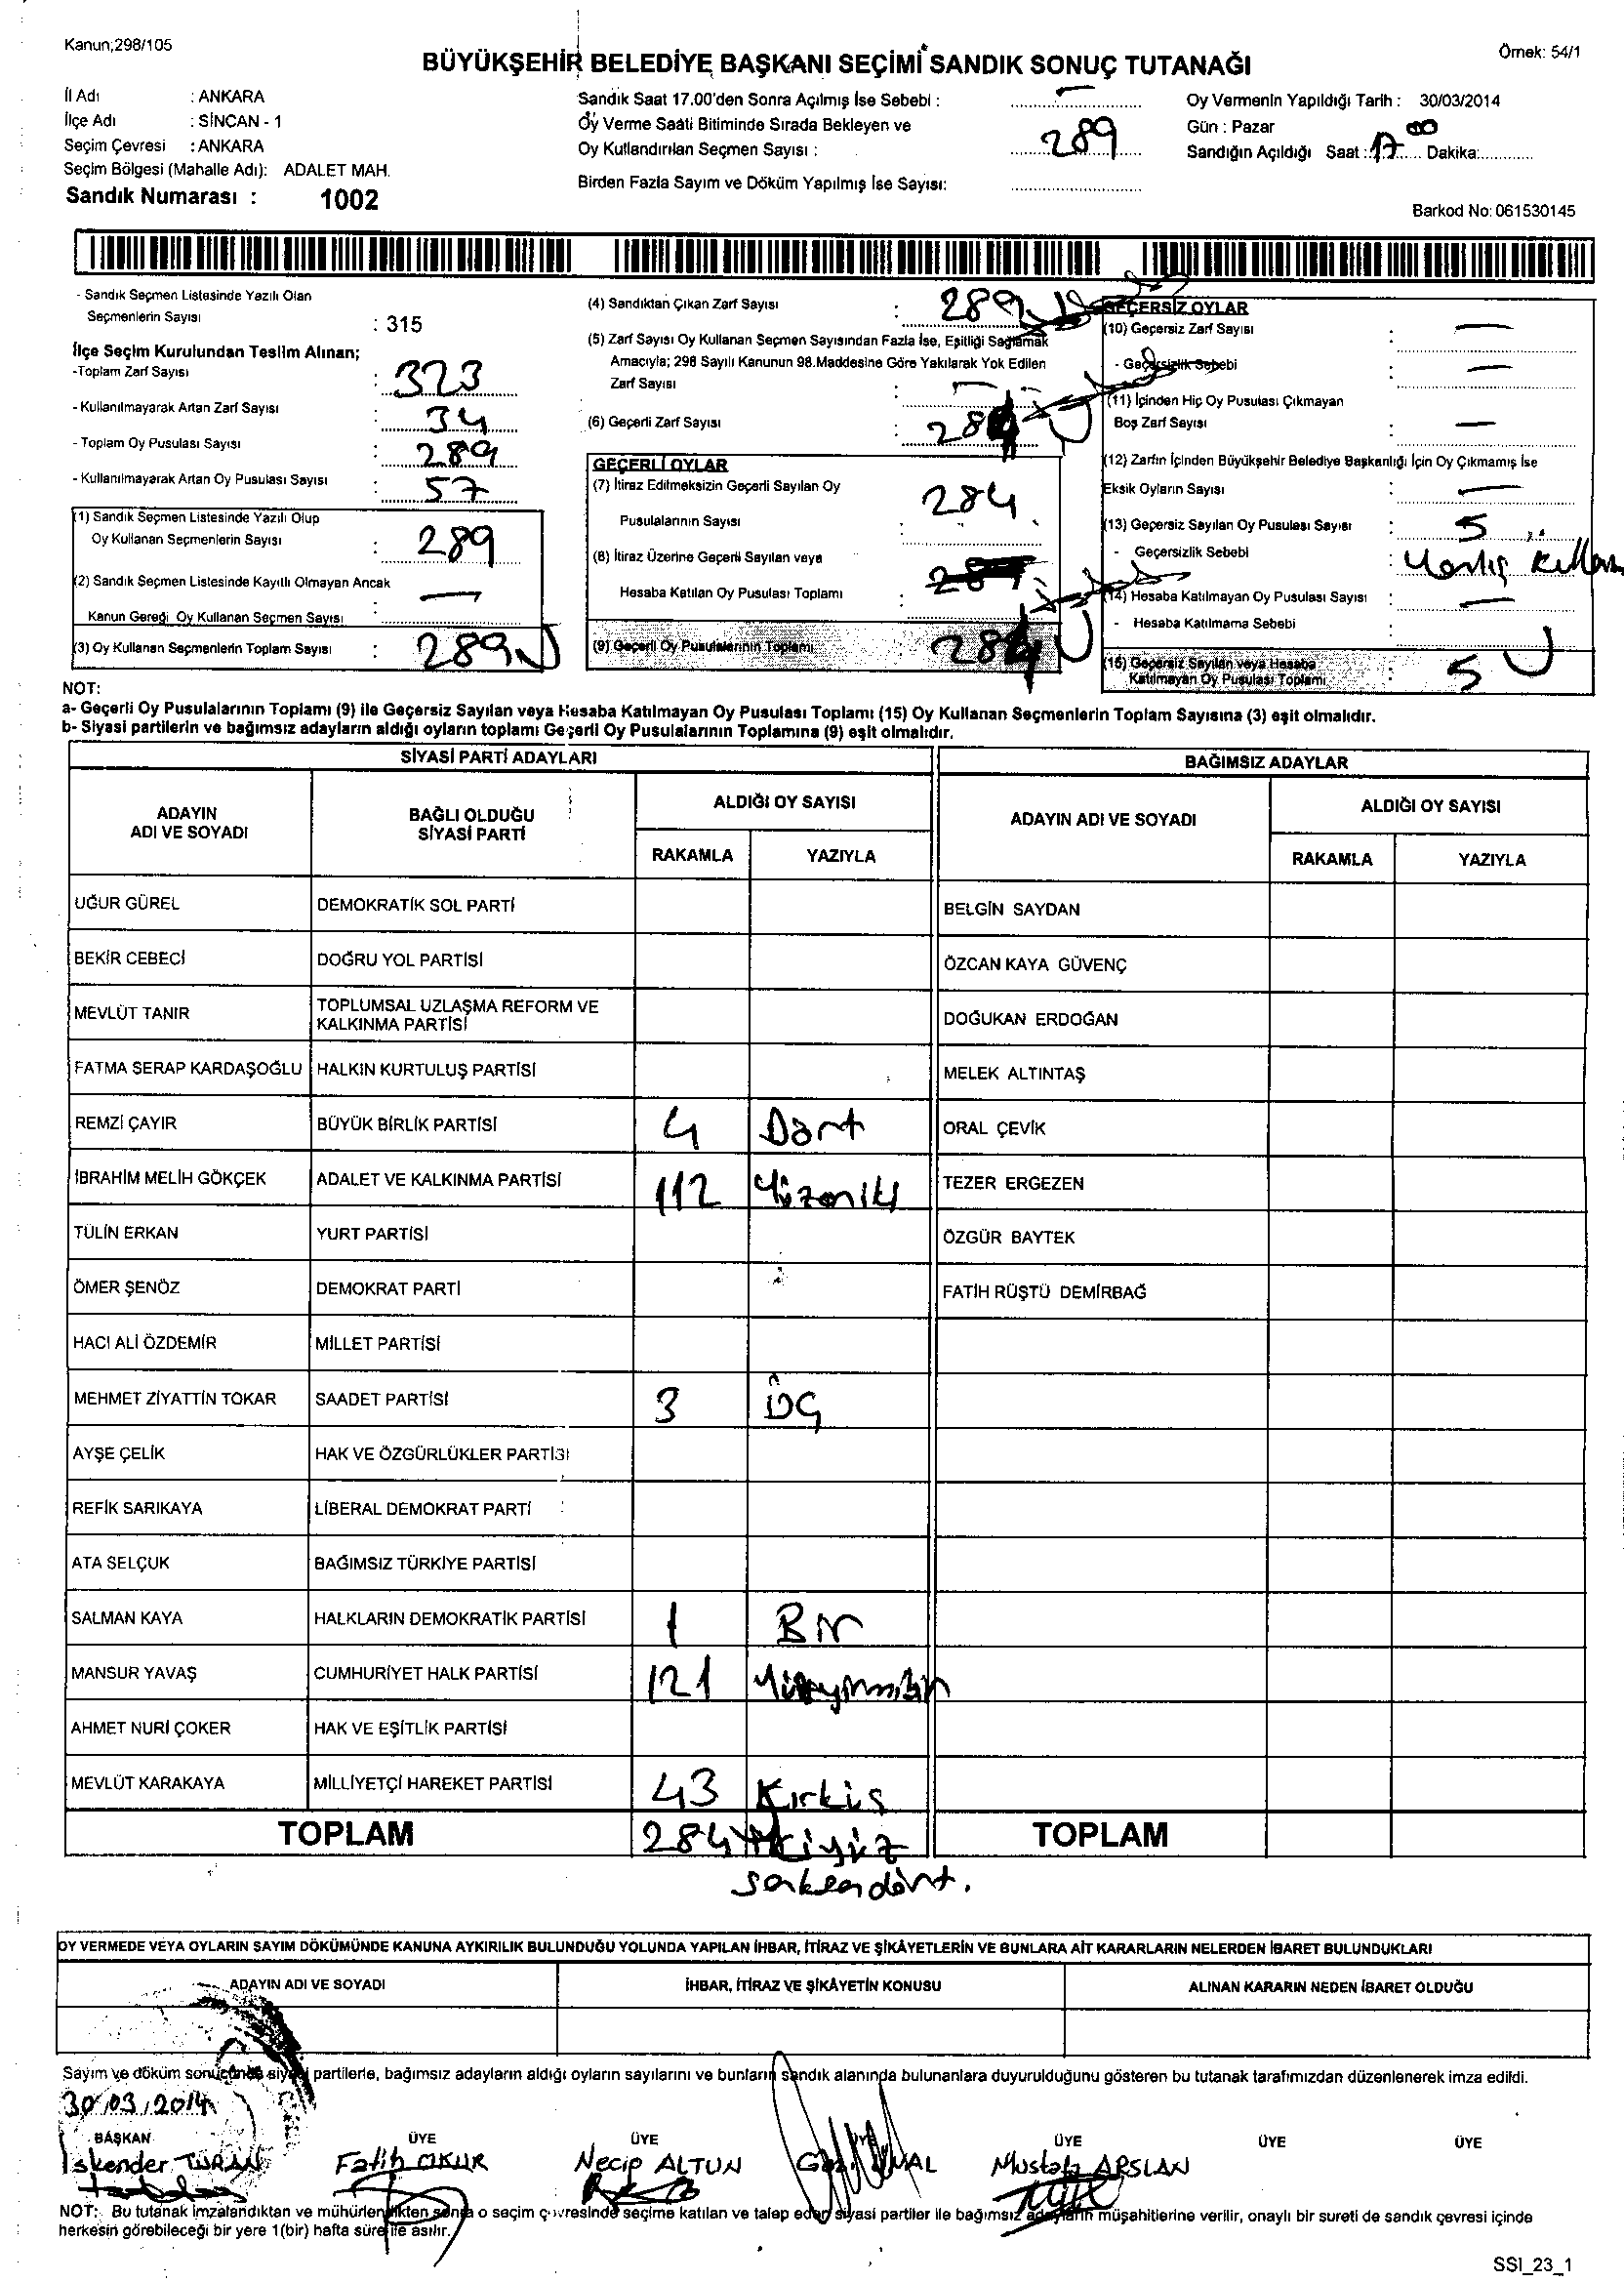 Kanun;298/105
Örnek: 54/1
BÜYÜKŞEHİR BELEDİYE BAŞKANI SEÇİMİ SANDIK SONUÇ TUTANAĞI
İl Adı : ANKARA
İlçe Adı : SİNCAN - 1
Seçim Çevresi : ANKARA
Seçim Bölgesi (Mahalle Adı): ADALET MAH.
Sandık Numarası : 1002
Sandık Saat 17.00'den Sonra Açılmış İse Sebebi : —
Oy Verme Saati Bitiminde Sırada Bekleyen ve
Oy Kullandırılan Seçmen Sayısı : 289
Birden Fazla Sayım ve Döküm Yapılmış İse Sayısı:
Oy Vermenin Yapıldığı Tarih : 30/03/2014
Gün : Pazar
Sandığın Açıldığı Saat : 17 Dakika: 00
Barkod No: 061530145
- Sandık Seçmen Listesinde Yazılı Olan
Seçmenlerin Sayısı : 315
İlçe Seçim Kurulundan Teslim Alınan;
-Toplam Zarf Sayısı : 323
- Kullanılmayarak Artan Zarf Sayısı : 34
- Toplam Oy Pusulası Sayısı : 289
- Kullanılmayarak Artan Oy Pusulası Sayısı : 57
(1) Sandık Seçmen Listesinde Yazılı Olup
Oy Kullanan Seçmenlerin Sayısı : 289
(2) Sandık Seçmen Listesinde Kayıtlı Olmayan Ancak
Kanun Gereği Oy Kullanan Seçmen Sayısı : —
(3) Oy Kullanan Seçmenlerin Toplam Sayısı : 289
(4) Sandıktan Çıkan Zarf Sayısı : 289
(5) Zarf Sayısı Oy Kullanan Seçmen Sayısından Fazla İse, Eşitliği Sağlamak
Amacıyla; 298 Sayılı Kanunun 98.Maddesine Göre Yakılarak Yok Edilen
Zarf Sayısı : —
(6) Geçerli Zarf Sayısı : 284
GEÇERLİ OYLAR
(7) İtiraz Edilmeksizin Geçerli Sayılan Oy
Pusulalarının Sayısı : 284
(8) İtiraz Üzerine Geçerli Sayılan veya
Hesaba Katılan Oy Pusulası Toplamı :
(9) Geçerli Oy Pusulalarının Toplamı 284
GEÇERSİZ OYLAR
(10) Geçersiz Zarf Sayısı : —
- Geçersizlik Sebebi : —
(11) İçinden Hiç Oy Pusulası Çıkmayan
Boş Zarf Sayısı : —
(12) Zarfın İçinden Büyükşehir Belediye Başkanlığı İçin Oy Çıkmamış İse
Eksik Oyların Sayısı : —
(13) Geçersiz Sayılan Oy Pusulası Sayısı : 5
- Geçersizlik Sebebi :
(14) Hesaba Katılmayan Oy Pusulası Sayısı : —
- Hesaba Katılmama Sebebi :
(15) Geçersiz Sayılan veya Hesaba
Katılmayan Oy Pusulası Toplamı : 5
NOT:
a- Geçerli Oy Pusulalarının Toplamı (9) ile Geçersiz Sayılan veya Hesaba Katılmayan Oy Pusulası Toplamı (15) Oy Kullanan Seçmenlerin Toplam Sayısına (3) eşit olmalıdır.
b- Siyasi partilerin ve bağımsız adayların aldığı oyların toplamı Geçerli Oy Pusulalarının Toplamına (9) eşit olmalıdır.
SİYASİ PARTİ ADAYLARI
ADAYIN
ADI VE SOYADI
BAĞLI OLDUĞU
SİYASİ PARTİ
ALDIĞI OY SAYISI
RAKAMLA YAZIYLA
UĞUR GÜREL DEMOKRATİK SOL PARTİ
BEKİR CEBECİ DOĞRU YOL PARTİSİ
MEVLÜT TANIR TOPLUMSAL UZLAŞMA REFORM VE
KALKINMA PARTİSİ
FATMA SERAP KARDAŞOĞLU HALKIN KURTULUŞ PARTİSİ
REMZİ ÇAYIR BÜYÜK BİRLİK PARTİSİ 4 Dört
İBRAHİM MELİH GÖKÇEK ADALET VE KALKINMA PARTİSİ 112 Yüzoniki
TÜLİN ERKAN YURT PARTİSİ
ÖMER ŞENÖZ DEMOKRAT PARTİ
HACI ALİ ÖZDEMİR MİLLET PARTİSİ
MEHMET ZİYATTİN TOKAR SAADET PARTİSİ 3 ÜÇ
AYŞE ÇELİK HAK VE ÖZGÜRLÜKLER PARTİSİ
REFİK SARIKAYA LİBERAL DEMOKRAT PARTİ
ATA SELÇUK BAĞIMSIZ TÜRKİYE PARTİSİ
SALMAN KAYA HALKLARIN DEMOKRATİK PARTİSİ 1 Bir
MANSUR YAVAŞ CUMHURİYET HALK PARTİSİ 121
AHMET NURİ ÇOKER HAK VE EŞİTLİK PARTİSİ
MEVLÜT KARAKAYA MİLLİYETÇİ HAREKET PARTİSİ 43 Kırküç
TOPLAM 284 ikiyüz
seksendört.
BAĞIMSIZ ADAYLAR
ADAYIN ADI VE SOYADI
ALDIĞI OY SAYISI
RAKAMLA YAZIYLA
BELGİN SAYDAN
ÖZCAN KAYA GÜVENÇ
DOĞUKAN ERDOĞAN
MELEK ALTINTAŞ
ORAL ÇEVİK
TEZER ERGEZEN
ÖZGÜR BAYTEK
FATİH RÜŞTÜ DEMİRBAĞ
TOPLAM
OY VERMEDE VEYA OYLARIN SAYIM DÖKÜMÜNDE KANUNA AYKIRILIK BULUNDUĞU YOLUNDA YAPILAN İHBAR, İTİRAZ VE ŞİKÂYETLERİN VE BUNLARA AİT KARARLARIN NELERDEN İBARET BULUNDUKLARI
ADAYIN ADI VE SOYADI
İHBAR, İTİRAZ VE ŞİKÂYETİN KONUSU
ALINAN KARARIN NEDEN İBARET OLDUĞU
Sayım ve döküm sonucunda siyasi partilerle, bağımsız adayların aldığı oyların sayılarını ve bunların sandık alanında bulunanlara duyurulduğunu gösteren bu tutanak tarafımızdan düzenlenerek imza edildi.
30/03/2014
BAŞKAN ÜYE ÜYE ÜYE ÜYE ÜYE ÜYE
İskender TURAN Fatih OKUR Necip ALTUN Mustafa ARSLAN
NOT: Bu tutanak imzalandıktan ve mühürlendikten sonra o seçim çevresinde seçime katılan ve talep eden siyasi partiler ile bağımsız adayların müşahitlerine verilir, onaylı bir sureti de sandık çevresi içinde
herkesin görebileceği bir yere 1(bir) hafta süre ile asılır.
SSI_23_1